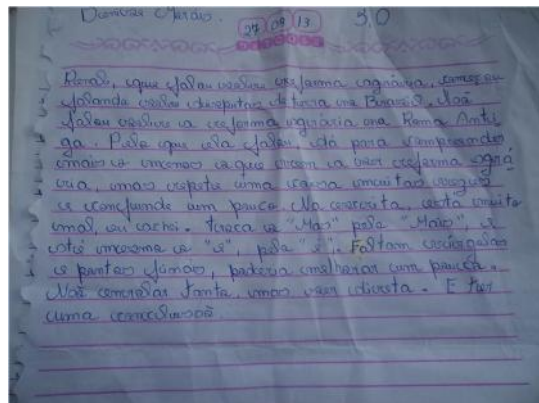 27 09 13 5,0
que falou sobre reforma agrária, começou
falando sobre disputas de terra no Brasil. Não
falou sobre a reforma agrária na Roma Anti
ga. Pelo que ela falou, dá para compreender
mais o menos o que vem a ser reforma agrá
ria, mas repete uma coisa muitas vezes
e confunde um pouco. Na escrita, está muito
mal, eu achei. troca o "Mas" pela "Mais", e
até mesmo o "e", pela "é". Faltam vírgulas
e pontos finais, poderia melhorar um pouco.
Não enrolar tanto, mas ser direta. E ter
uma conclusão